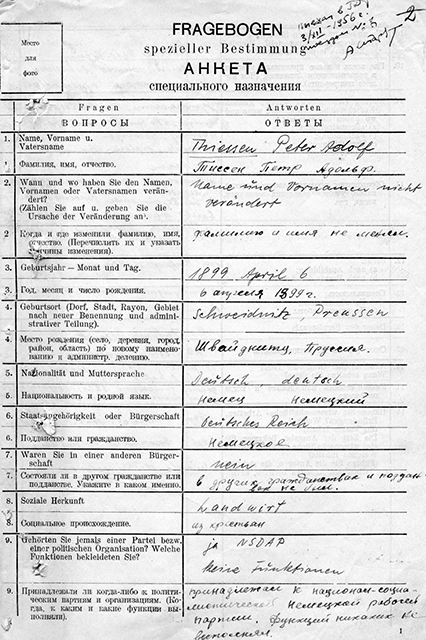 2
выехал в ГДР
3/XII-1956г.
Место
для
фото
FRAGEBOGEN
spezieller Bestimmung
АНКЕТА
специального назначения
Fragen
Antworten
ВОПРОСЫ
ОТВЕТЫ
1. Name, Vorname u.
Vatersname
Thiessen Peter Adolf
1. Фамилия, имя, отчество.
Тиссен Петр Адольф.
2. Wann und wo haben Sie den Namen,
Vornamen oder Vatersnamen verän-
dert?
(Zählen Sie auf u. geben Sie die
Ursache der Veränderung an).
Name und Vornamen nicht
verändert
2 Когда и где изменили фамилию, имя,
отчество. (Перечислить их и указать
причины изменения).
фамилию и имя не менял.
3. Geburtsjahr — Monat und Tag.
1899 April 6
3. Год, месяц и число рождения.
6 апреля 1899 г.
4. Geburtsort (Dorf, Stadt, Rayon, Gebiet
nach neuer Benennung und admini-
strativer Teilung).
Schweidnitz, Preussen
4. Место рождения (село, деревня, город,
район, область) по новому наимено-
ванию и администр. делению.
Швайдниту, Пруссия.
5. Nationalität und Muttersprache
Deutsch, deutsch
5. Национальность и родной язык.
немец немецкий
6. Staatsangehörigkeit oder Bürgerschaft
Deutsches Reich
6. Подданство или гражданство.
немецкое
7. Waren Sie in einer anderen Bürger-
schaft
nein
7. Состояли ли в другом гражданстве или
подданстве. Укажите в каком именно.
в других гражданствах и поддан-
не был.
8. Soziale Herkunft
Landwirt
8. Социальное происхождение.
из крестьян
9. Gehörten Sie jemals einer Partei bezw.
einer politischen Organisation? Welche
Funktionen bekleideten Sie?
ja NSDAP
keine Funktionen
9. Принадлежали ли когда-либо к полити-
ческим партиям и организациям. (Ко-
гда, к каким и какие функции вы-
полняли).
принадлежал к национал-социа-
листической немецкой рабочей
партии. функций никаких не
выполнял.